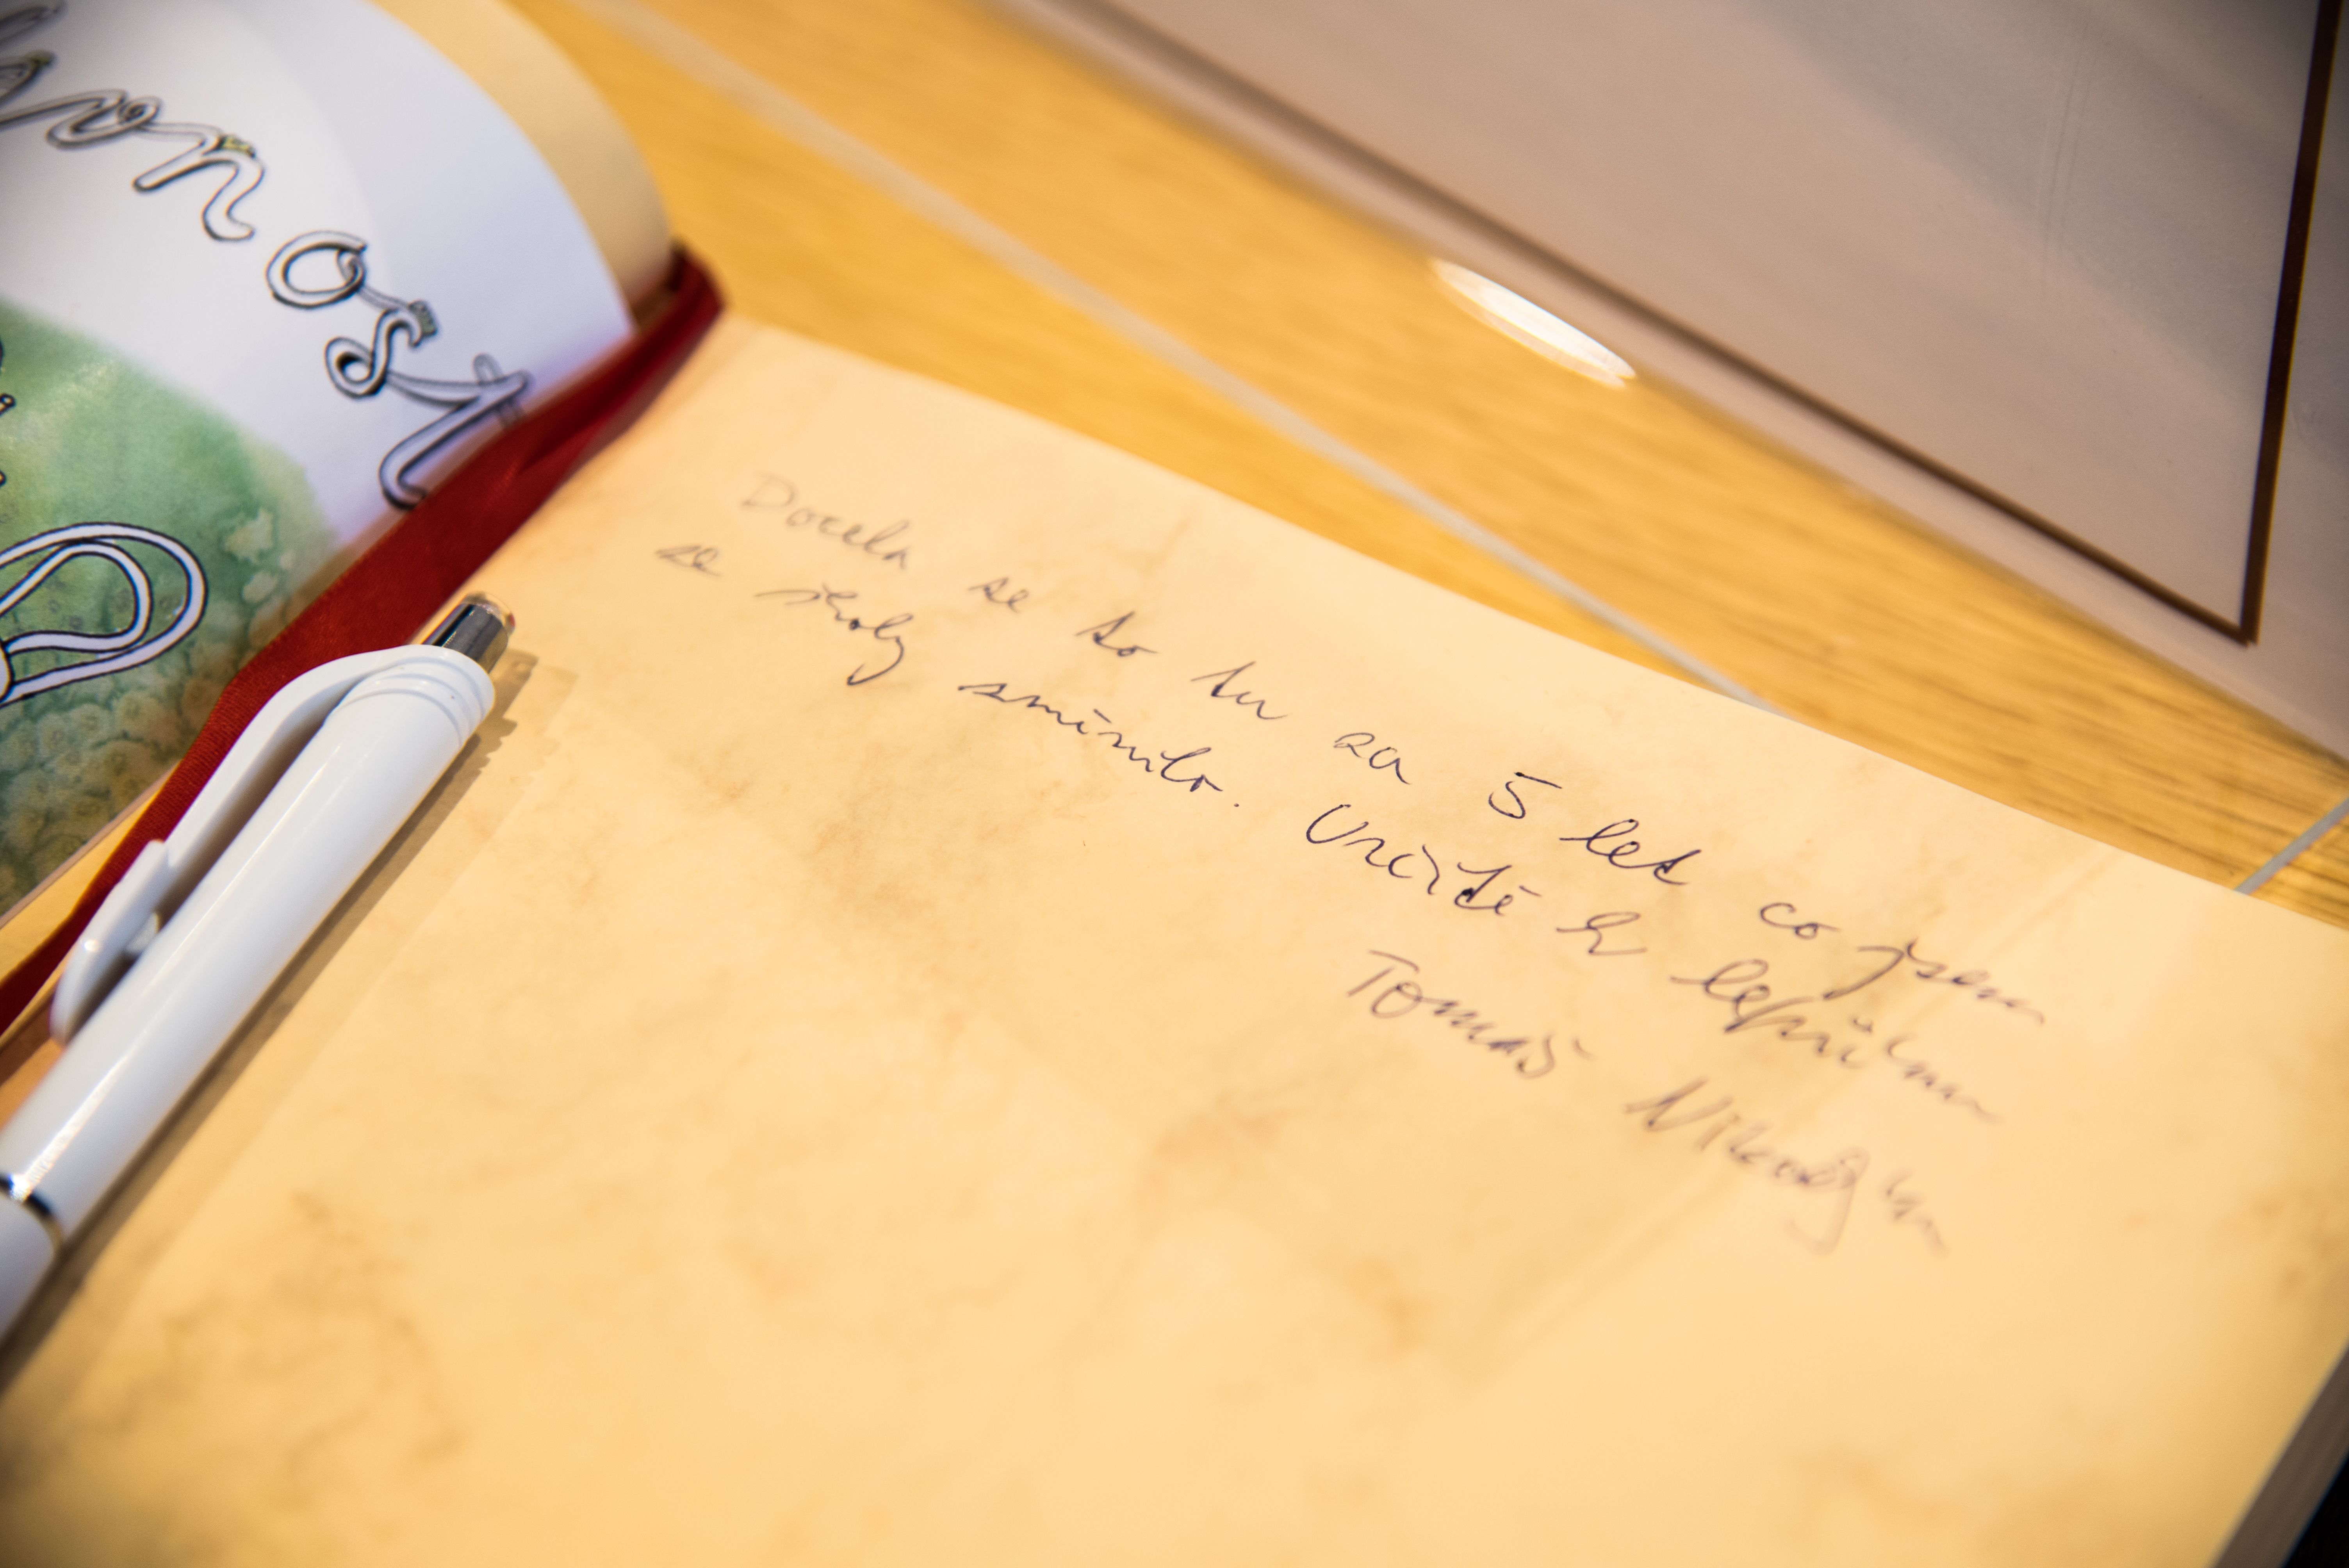 nost
Docela se to tu za 5 let co jsem
ze školy změnilo. Určitě k lepšímu
Tomáš